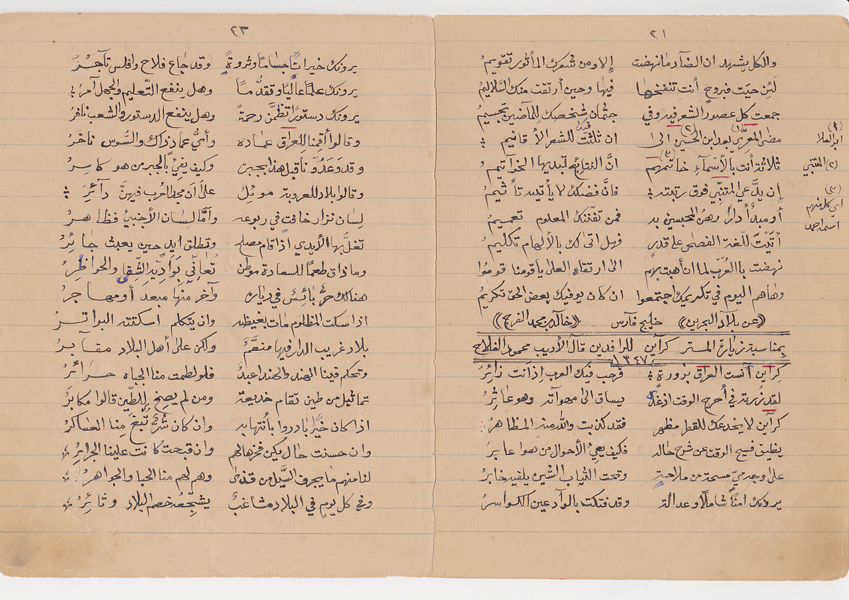 ٢١
والكل يشهد ان الضاد ما نهضت إلا ومن شعرك المأثور تقويم
لئن حييت فبروح أنت تنفخها فيها وحين ارتقت منك السلاليم
جمعت كل عصور الشعر في وفي جثمان شخصك للماضين تجسيم
مضى المعري بعد ابن الحسين الى ان تثلث فيك للشعر الأقانيم
ثلاثة أنت بالأسماء خاتمهم انَّ النتائج تبديها الخواتيم
إن يدّعي المتنبي فوق رتبته فانّ فضلك لا يأتيه تأثيم
أو مبدأ دار رهن المحبسين به فمن تفننك المعلوم تعميم
أتيت للغة الفصحى على قدر فهل اتى لك بالألهام تكليم
نهضت بالعُرب لما ان أهبت بهم الى ارتقاء العلى يا قومنا قوموا
وهاهم اليوم في تكريمك اجتمعوا ان كان يوفيك بعض الحق تكريم
((عن بلاد البحرين)) خليج فارس ((خالد بن محمد الفرج))
بمناسبة زيارة المستر كراين للرافدين قال الأديب محمود الفلاح
١٣٤٧
كراين آنست العراق بزورة فرحب فيك العرب إذ أنت زائر
لقد زرته في أحرج الوقت اذ غدا يساق الى مهواته وهو عاثر
كراين لا يخدعك للقطر مظهر فقد كذبت والله منه المظاهر
يضيق فسيح الوقت عن شرح حاله فكيف يعي الأحوال من هو عابر
على وجهه مسحة من ملاحة وتحت الثياب الشين يلفيه خابر
يرونك امناً شاملاً وعدالة وقد فتكت بالوادعين الكواسر
(١) ابو العلا
(٢) المتنبي
(٣) اي كل منهم اسمه احمد
٢٣
يرونك خيرات جساماً وثروة وقد جاع فلاح وافلس تاجر
يرونك علماً عالياً وتقدماً وهل ينفع التعليم والجهل آمر
يرونك دستوراً تضمن رحمة وهل ينفع الدستور والشعب نافر
وقالوا أقمنا للعراق عماده وأي عماد ذاك والسوس ناخر
وقد وعدونا قبل هذا بجبره وكيف يفي بالجبر من هو كاسر
وقالوا بلاد للعروبة موئل على أن مجد العرب فيهن داثر
لسان نزار خافت في ربوعه وأمّا لسان الأجنبي فظاهر
تغل بها الأيدي اذا قام مصلح وتطلق ايد حين يعبث جائر
وما ذاق طعماً للسعادة موطن تعاني بواديه الشقا والحواظر
هنالك حر بائس في دياره وآخر منها مبعد أو مهاجر
اذا سكت المظلوم مات بغيظه وان يتكلم اسكتته البواتر
بلاد غريب الدار فيها منعم ولكن على أهل البلاد مقابر
وتحكم فينا الهند والهند اعبد فلو لطمت منا الجباه حرائر
تماثيل من طين تقام خديعة ومن لم يصخ للطين قالوا مكابر
اذا كان خيراً بادروا بأنتهابه وان كان شر تبغ منا العساكر
وان حسنت حال يكن فخرها لهم وان قبحت كانت علينا الجرائر
لنا منهم ما يجرف السيل من قذى وهم لهم منا الحبا والجواهر
وفي كل يوم في البلاد مشاغب يشجعه خصم البلاد وثائر